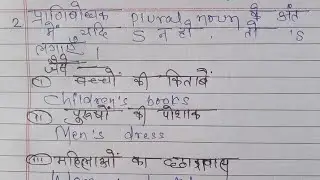 2. प्राणिबोधक plural noun के अंत
में यदि S न हो, तो 's
लगाएँ।
जैसे
(i) बच्चों की किताबें
Children's books
(ii) पुरुषों की पोशाक
Men's dress
(iii) महिलाओं का छात्रावास